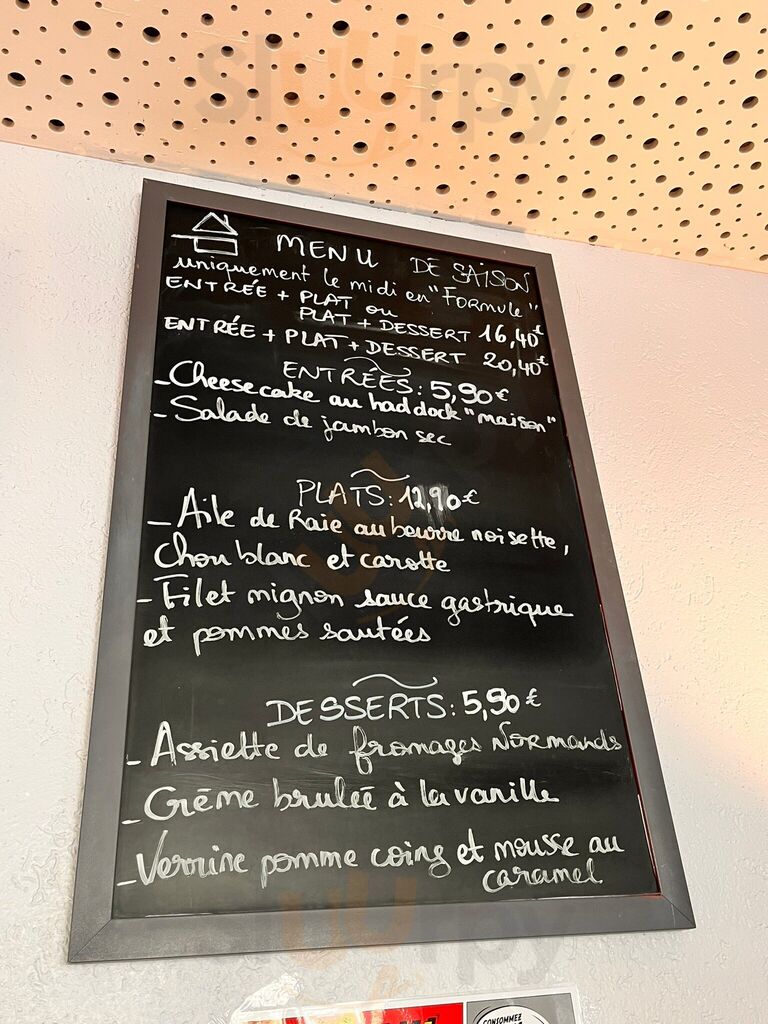 Sluurpy
MENU DE SAISON
uniquement le midi en "Formule"
ENTRÉE + PLAT ou
PLAT + DESSERT 16,40€
ENTRÉE + PLAT + DESSERT 20,40€
ENTRÉES: 5,90€
- Cheesecake au haddock "maison"
- Salade de jambon sec
PLATS: 12,90€
- Aile de Raie au beurre noisette,
Chou blanc et carotte
- Filet mignon sauce gastrique
et pommes sautées
DESSERTS: 5,90€
- Assiette de fromages Normands
- Crème brulée à la vanille
- Verrine pomme coing et mousse au
caramel
Sluurpy
CONSOMMEZ